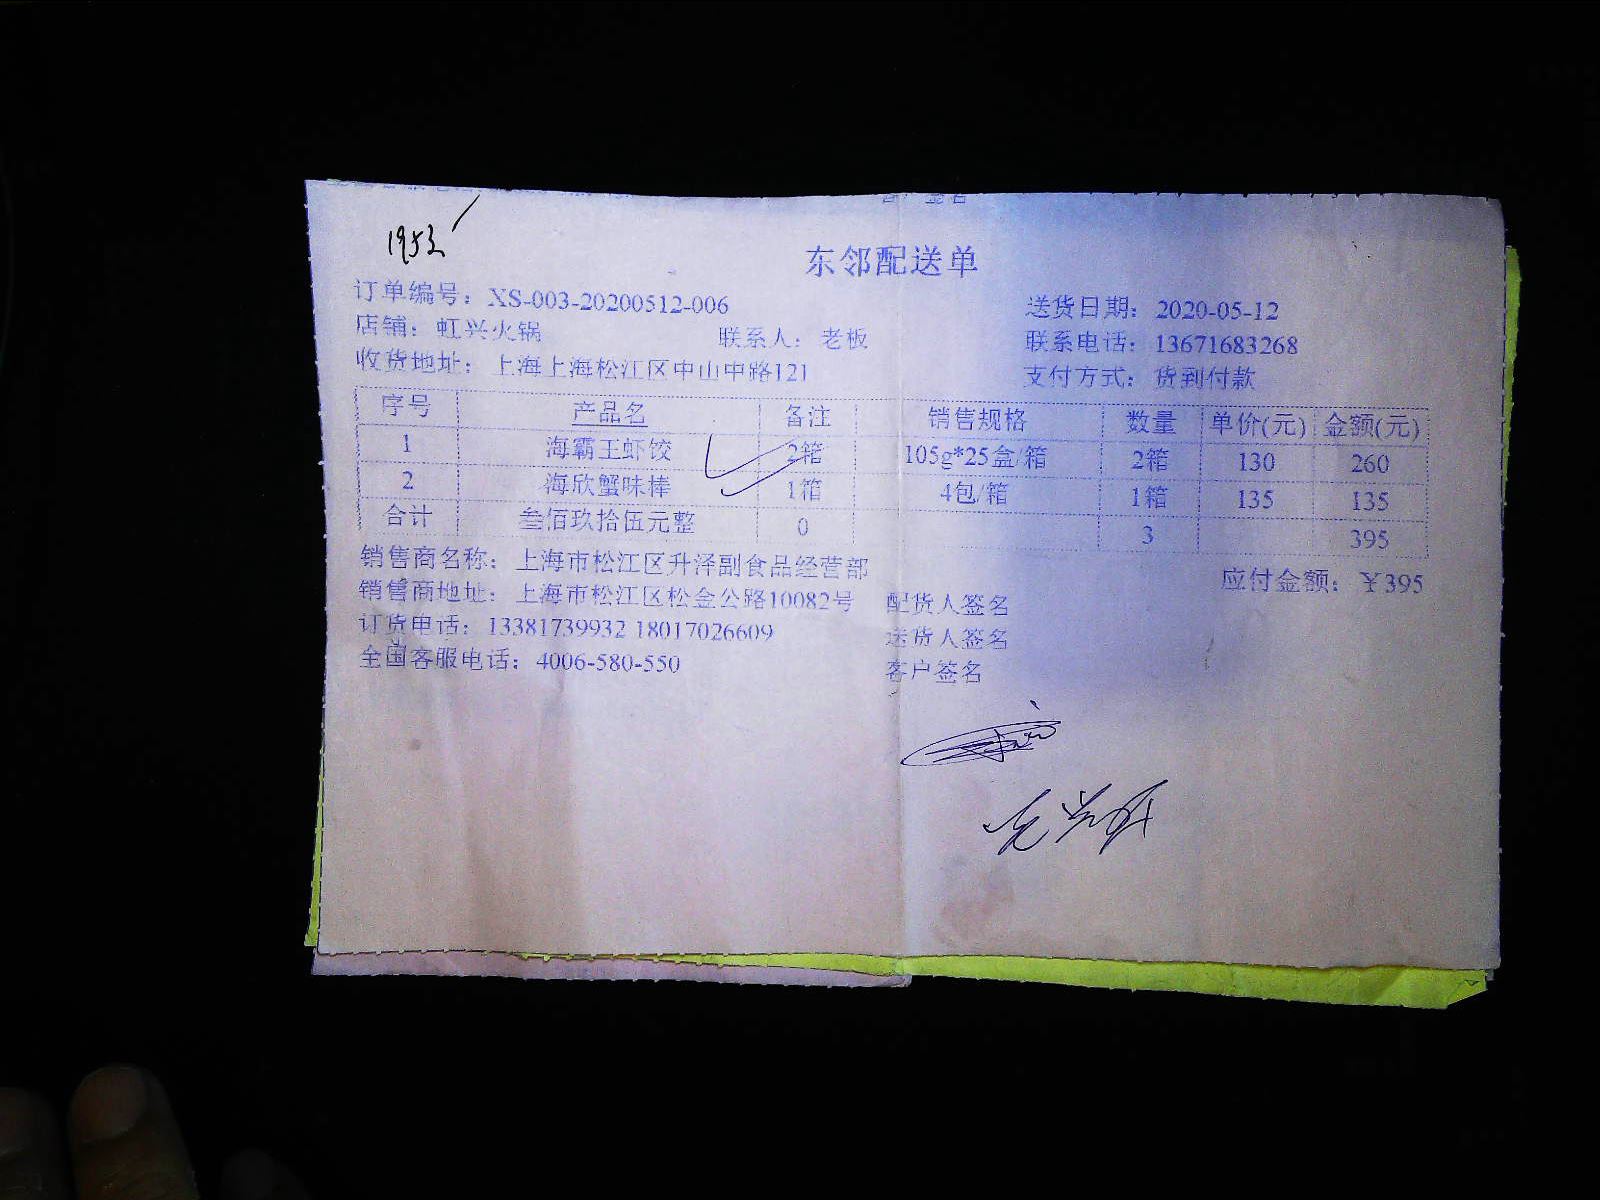 东邻配送单
订单编号：XS-003-20200512-006 送货日期：2020-05-12
店铺：虹兴火锅 联系人：老板 联系电话：13671683268
收货地址：上海上海松江区中山中路121 支付方式：货到付款
序号 产品名 备注 销售规格 数量 单价(元) 金额(元)
1 海霸王虾饺 2箱 105g*25盒/箱 2箱 130 260
2 海欣蟹味棒 1箱 4包/箱 1箱 135 135
合计 叁佰玖拾伍元整 0 3 395
销售商名称：上海市松江区升泽副食品经营部 应付金额：￥395
销售商地址：上海市松江区松金公路10082号 配货人签名
订货电话：13381739932 18017026609 送货人签名
全国客服电话：4006-580-550 客户签名